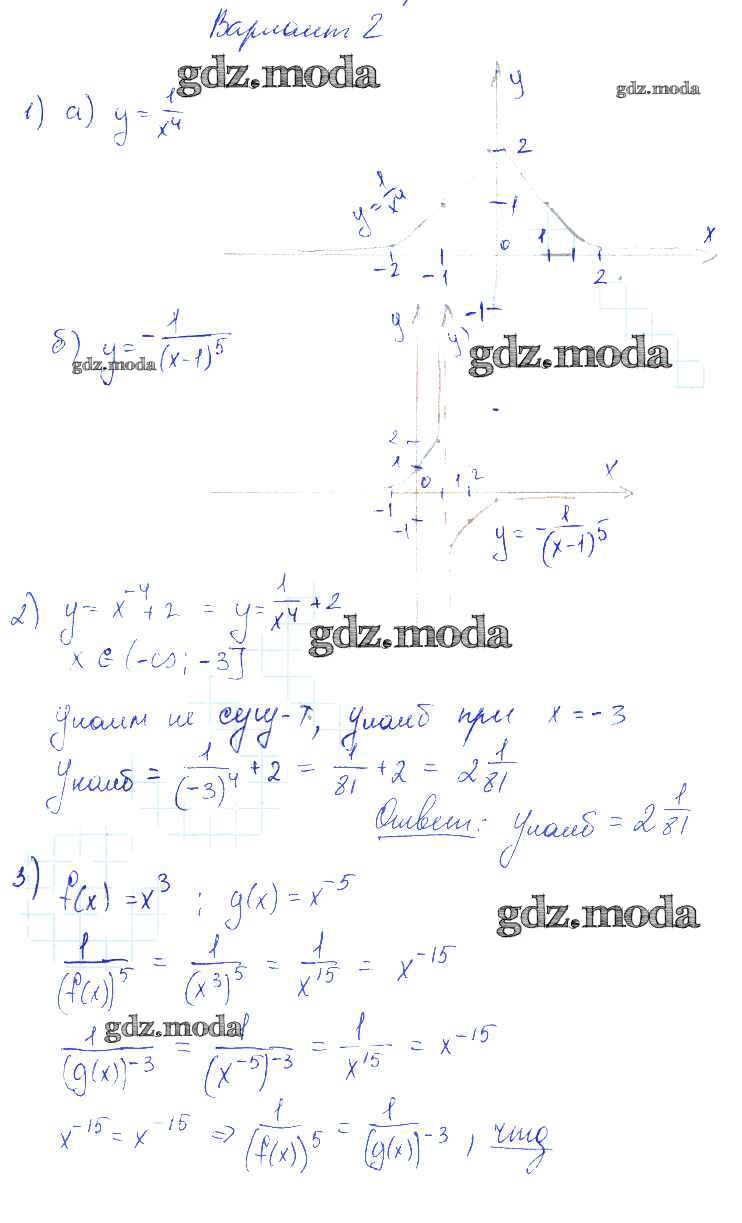 Вариант 2
gdz.moda
gdz.moda
1) а) y = 1/x⁴
y
2
y = 1/x⁴
1
-2 -1 0 1 2 x
-1
б) y = - 1/(x-1)⁵
gdz.moda
gdz.moda
y y)
2
1
-1 0 1 2 x
-1
y = - 1/(x-1)⁵
2) y = x⁻⁴ + 2 = y = 1/x⁴ + 2
gdz.moda
x ∈ (-∞; -3]
yнаим не сущ-т, yнаиб при x = -3
yнаиб = 1/(-3)⁴ + 2 = 1/81 + 2 = 2 1/81
Ответ: yнаиб = 2 1/81
3) f(x) = x³ ; g(x) = x⁻⁵
gdz.moda
1/(f(x))⁵ = 1/(x³)⁵ = 1/x¹⁵ = x⁻¹⁵
gdz.moda
1/(g(x))⁻³ = 1/(x⁻⁵)⁻³ = 1/x¹⁵ = x⁻¹⁵
x⁻¹⁵ = x⁻¹⁵ ⇒ 1/(f(x))⁵ = 1/(g(x))⁻³, чтд